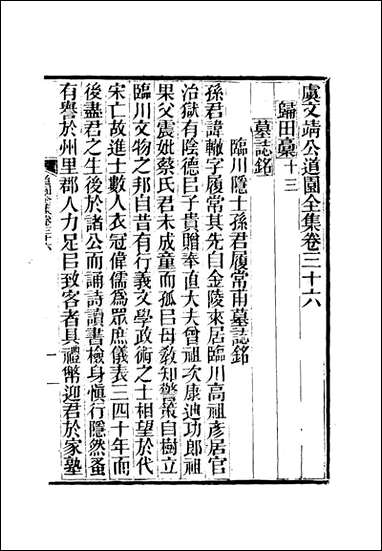 虞文靖公道園全集卷三十六
歸田藁十三
墓誌銘
臨川隱士孫君履常甫墓誌銘
孫君諱轍字履常其先自金陵來居臨川高祖彥居官
治獄有陰德㠯子貴贈奉直大夫曾祖次康迪功郎祖
果父震妣蔡氏君未成童而孤㠯母教知警策自樹立
臨川文物之邦自昔有行義文學政術之士相望於代
宋亡故進士數人衣冠偉儒爲眾庶儀表三四十年而
後盡君之生後於諸公而誦詩讀書檢身慎行隱然蚤
有譽於州里郡人力足㠯致客者具禮幣迎君於家塾
一